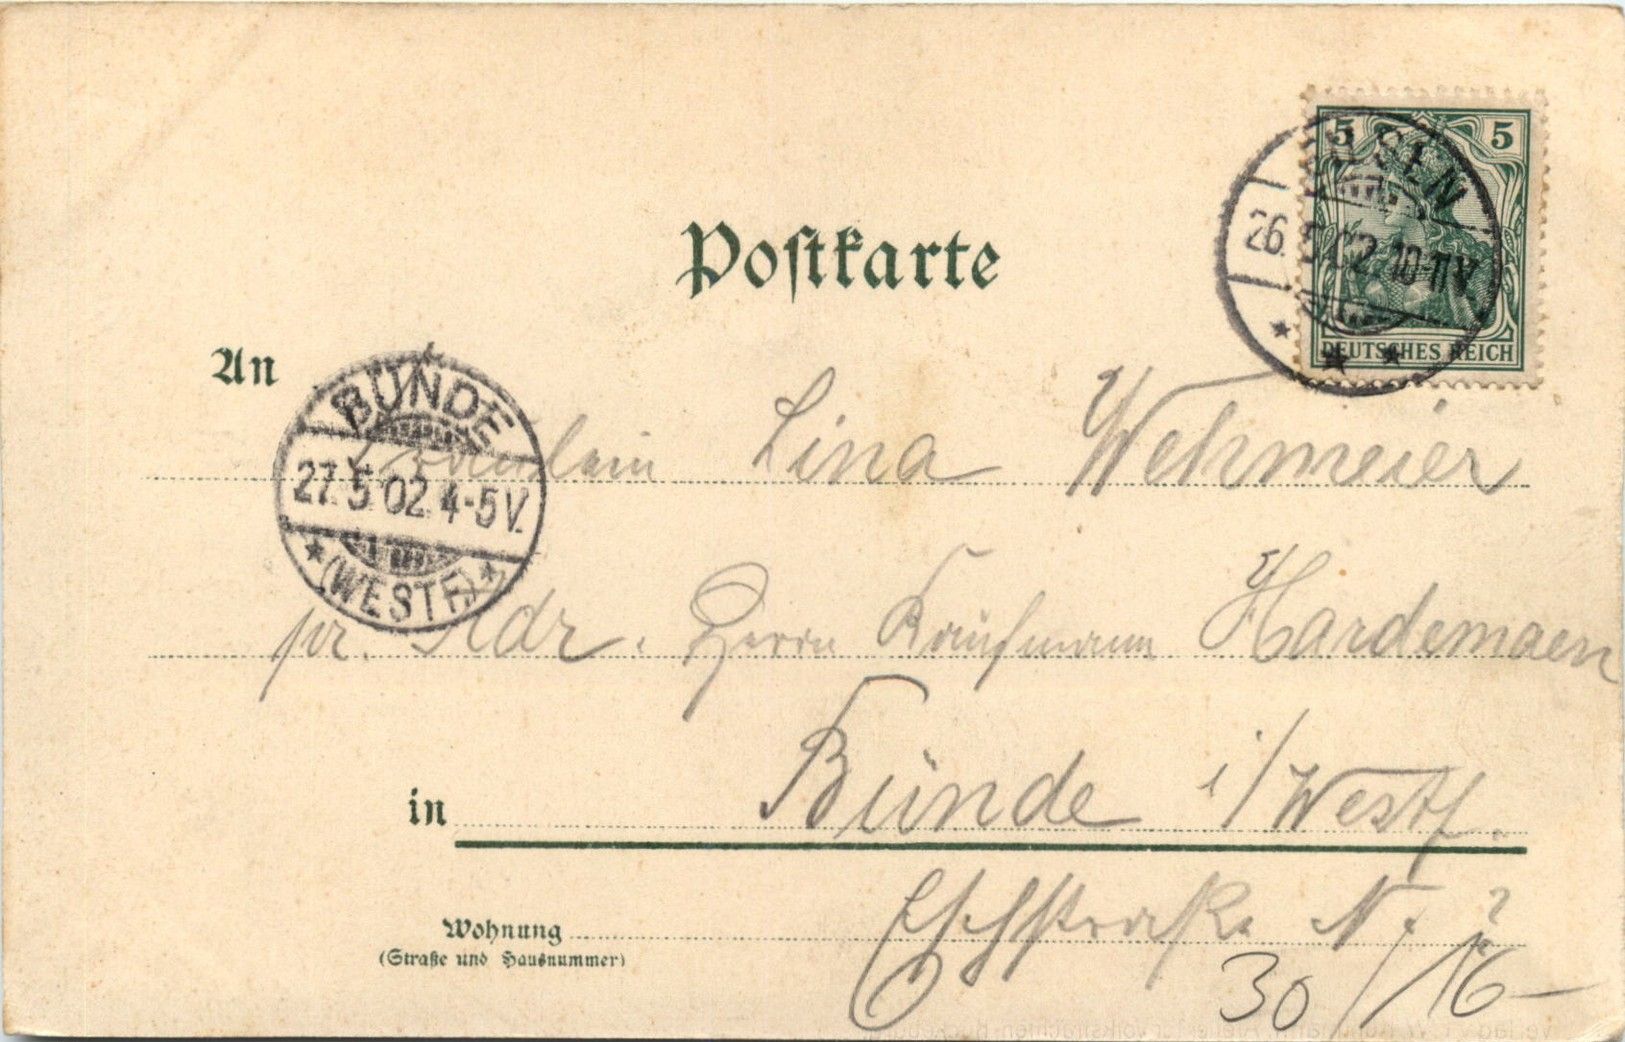 5 5
26.5.02. 10-11V.
DEUTSCHES REICH
Postkarte
An
BÜNDE
27.5.02. 4-5V.
(WESTF.)
Fräulein Lina Wehmeier
pr. Adr. Herrn Kaufmann Hardemaen
in Bünde i/Westf.
Wohnung Eschstraße N. ?
(Straße und Hausnummer)
30/16-